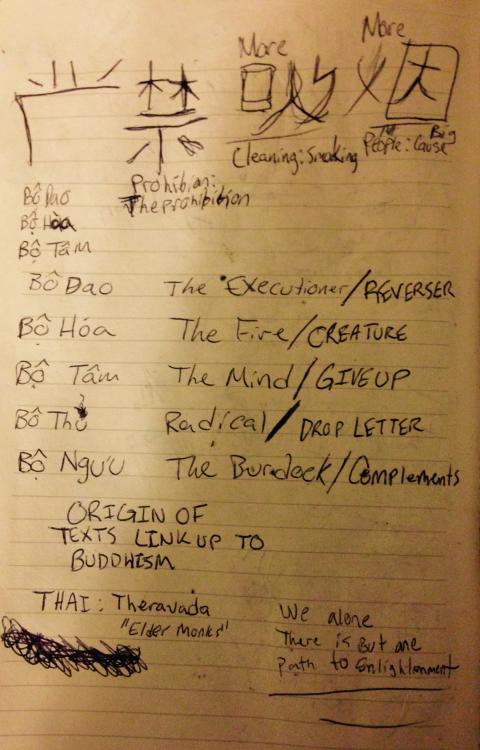 More More
严禁吸烟
Cleaning: Smoking
The Big
People: Cause
Prohibian:
The prohibition
Bộ Dao
Bộ Hỏa
Bộ Tâm
Bộ Dao The Executioner/REVERSER
Bộ Hỏa The Fire/CREATURE
Bộ Tâm The Mind/GIVE UP
Bộ Thủ Radical/DROP LETTER
Bộ Ngưu The Burdock/Complements
ORIGIN OF
TEXTS LINK UP TO
BUDDHISM
THAI: Theravada
"Elder Monks"
We alone
There is But one
Path to Enlightenment